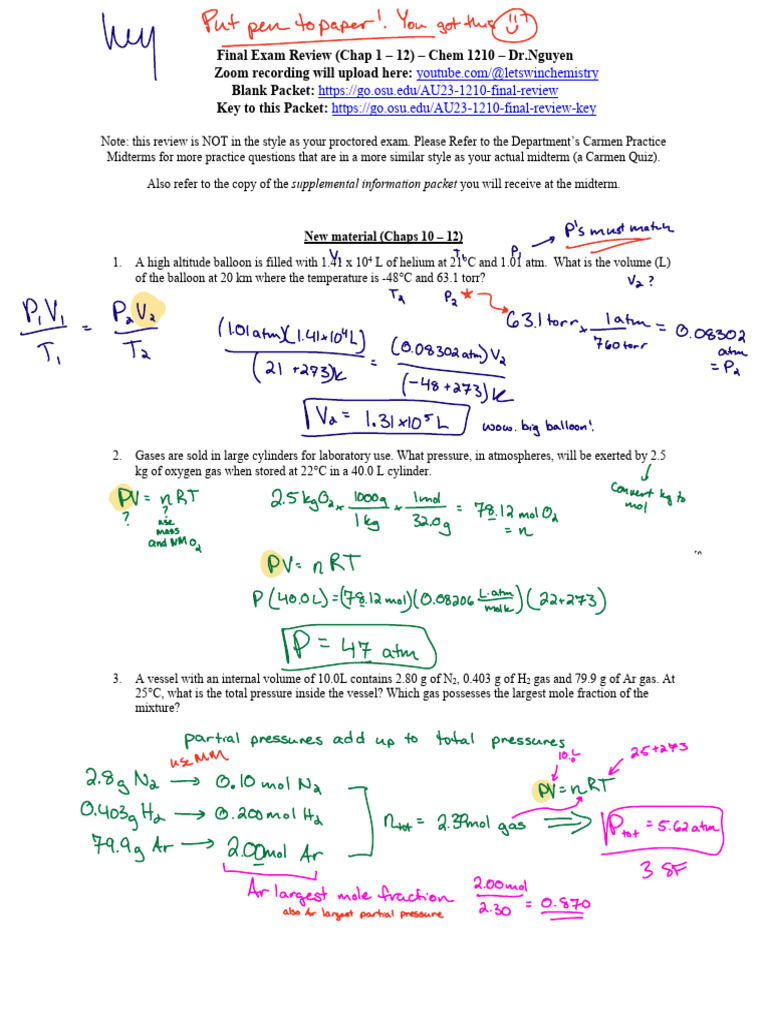 Key
Put pen to paper! You got this
Final Exam Review (Chap 1 – 12) – Chem 1210 – Dr.Nguyen
Zoom recording will upload here: youtube.com/@letswinchemistry
Blank Packet: https://go.osu.edu/AU23-1210-final-review
Key to this Packet: https://go.osu.edu/AU23-1210-final-review-key
Note: this review is NOT in the style as your proctored exam. Please Refer to the Department's Carmen Practice
Midterms for more practice questions that are in a more similar style as your actual midterm (a Carmen Quiz).
Also refer to the copy of the supplemental information packet you will receive at the midterm.
New material (Chaps 10 – 12)
P's must match
V₁ T₁ P₁
1. A high altitude balloon is filled with 1.41 x 10⁴ L of helium at 21°C and 1.01 atm. What is the volume (L)
of the balloon at 20 km where the temperature is -48°C and 63.1 torr?
V₂ ?
T₂ P₂ *
P₁V₁ / T₁ = P₂V₂ / T₂
(1.01 atm)(1.41×10⁴ L) / (21 + 273)K = (0.08302 atm) V₂ / (-48 + 273) K
63.1 torr × 1 atm / 760 torr = 0.08302 atm = P₂
V₂ = 1.31×10⁵ L
wow. big balloon!
2. Gases are sold in large cylinders for laboratory use. What pressure, in atmospheres, will be exerted by 2.5
kg of oxygen gas when stored at 22°C in a 40.0 L cylinder.
convert kg to mol
PV = nRT
? ?
use mass and MM O₂
2.5 kg O₂ × 1000g / 1 kg × 1 mol / 32.0g = 78.12 mol O₂ = n
PV = nRT
P (40.0 L) = (78.12 mol)(0.08206 L·atm / mol K)(22+273)
P = 47 atm
3. A vessel with an internal volume of 10.0L contains 2.80 g of N₂, 0.403 g of H₂ gas and 79.9 g of Ar gas. At
25°C, what is the total pressure inside the vessel? Which gas possesses the largest mole fraction of the
mixture?
partial pressures add up to total pressures
use MM
10.0 L
25+273
2.8g N₂ → 0.10 mol N₂
PV = nRT
0.403g H₂ → 0.200 mol H₂
79.9g Ar → 2.00 mol Ar
P tot = 5.62 atm
3 SF
Ar largest mole fraction 2.00 mol / 2.30 = 0.870
also Ar largest partial pressure